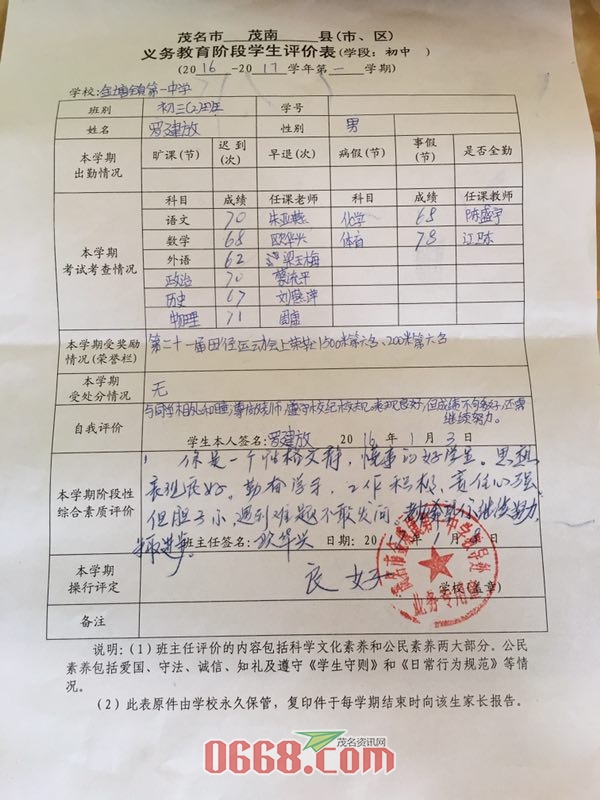 茂名市 茂南 县(市、区)
义务教育阶段学生评价表(学段：初中 )
(2016-2017学年第一学期)
学校：金塘镇第一中学
班别 初三(2)班 学号
姓名 罗建放 性别 男
本学期出勤情况 旷课(节) 迟到(次) 早退(次) 病假(节) 事假(节) 是否全勤
本学期考试考查情况
科目 成绩 任课老师 科目 成绩 任课教师
语文 70 朱亚 化学 65 陈盛宇
数学 68 欧华兴 体育 78 江陈
外语 62 梁玉梅
政治 70 蔡流平
历史 67 刘慧萍
物理 71 周虚
本学期受奖励情况(荣誉栏) 第二十一届田径运动会上荣获1500米第六名、200米第六名
本学期受处分情况 无
自我评价 与同学相处和睦，尊敬老师，遵守校纪校规，表现良好，但成绩不够好，还需
继续努力。
学生本人签名：罗建放 2016年1月3日
本学期阶段性综合素质评价 你是一个性格文静，懂事的好学生。思想
表现良好。勤奋学习，工作积极，责任心强
但胆子小，遇到难题不敢发问，希望你继续努力，
争取进步。班主任签名：欧华兴 日期：20 年1月 日
本学期操行评定 良好 学校(盖章)
业务专用章
备注
说明：(1)班主任评价的内容包括科学文化素养和公民素养两大部分。公民
素养包括爱国、守法、诚信、知礼及遵守《学生守则》和《日常行为规范》等情
况。
(2)此表原件由学校永久保管，复印件于每学期结束时向该生家长报告。
茂名资讯网
0668.com